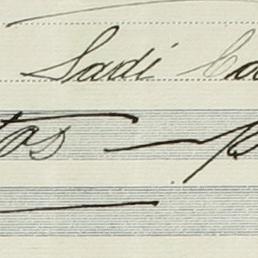 Sadi Ca
tos